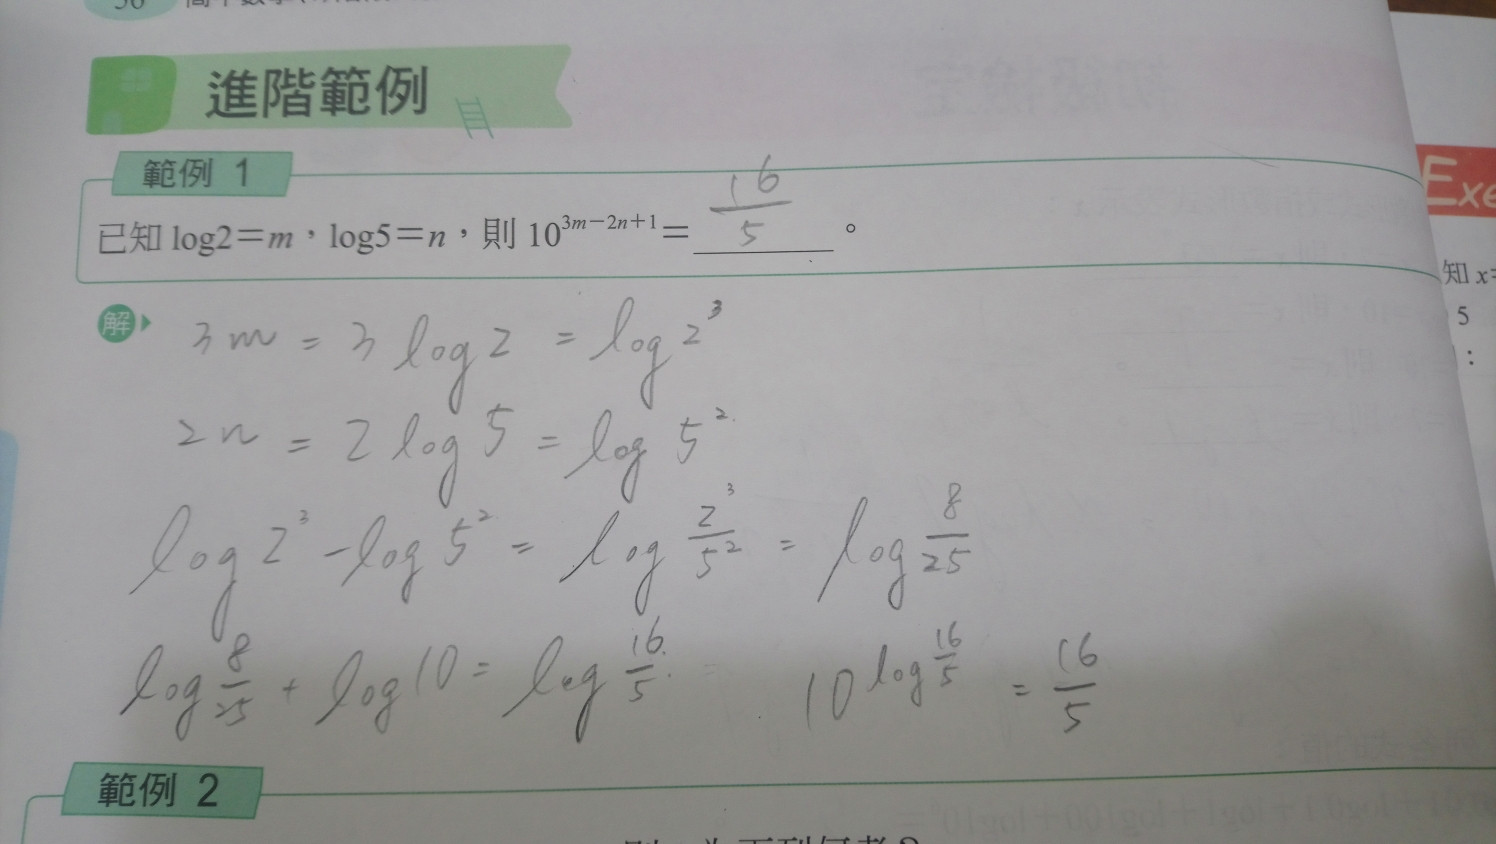 進階範例
範例 1
已知 log2=m，log5=n，則 10^{3m-2n+1}= 16/5 。
解 3m = 3 log 2 = log 2^3
2n = 2 log 5 = log 5^2
log 2^3 - log 5^2 = log 2^3/5^2 = log 8/25
log 8/25 + log 10 = log 16/5 10^{log 16/5} = 16/5
範例 2
Exe
知 x=
5
：